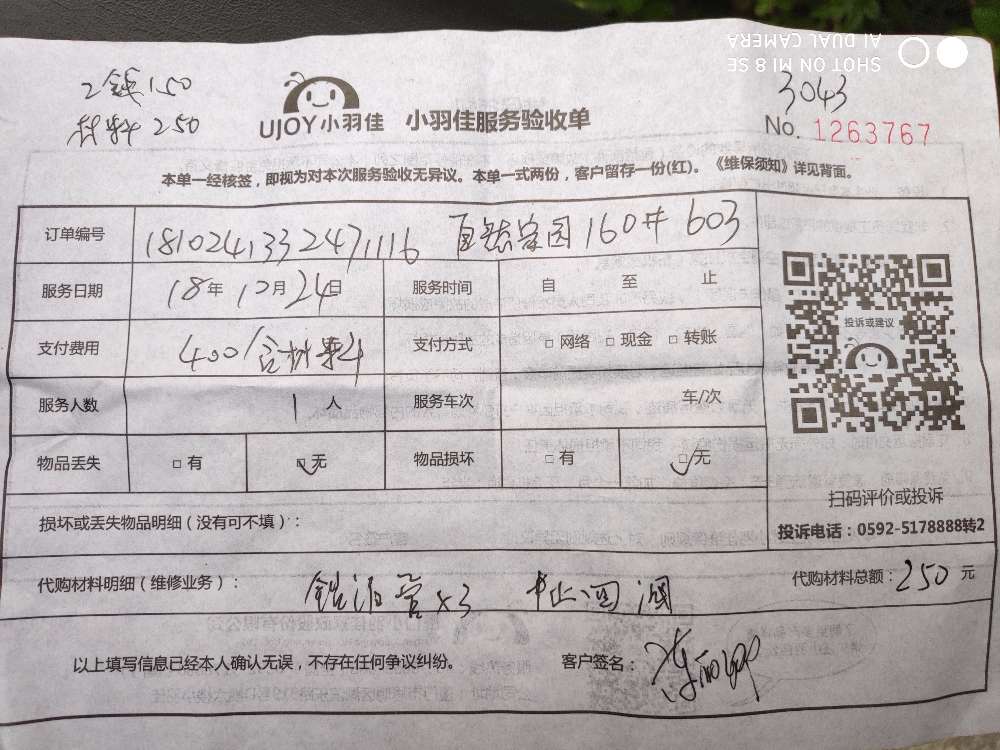 SHOT ON MI 8 SE
AI DUAL CAMERA
工钱150
材料250
UJOY小羽佳 小羽佳服务验收单
3043
No. 1263767
本单一经核签，即视为对本次服务验收无异议。本单一式两份，客户留存一份(红)。《维保须知》详见背面。
订单编号 1810241332471116 160# 603
服务日期 18年10月24日 服务时间 自 至 止
支付费用 400/含材料 支付方式 □网络 □现金 □转账
服务人数 1人 服务车次 车/次
物品丢失 □有 □无 物品损坏 □有 □无
投诉或建议
扫码评价或投诉
投诉电话：0592-5178888转2
损坏或丢失物品明细（没有可不填）：
代购材料明细（维修业务）： 管x3 止回阀 代购材料总额：250元
以上填写信息已经本人确认无误，不存在任何争议纠纷。 客户签名：